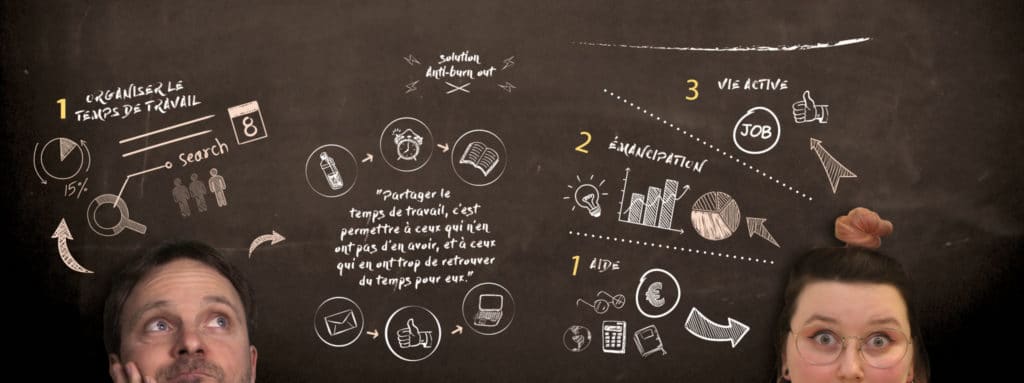 1 ORGANISER LE
TEMPS DE TRAVAIL
8
search
15%
solution
Anti-burn out
"Partager le
temps de travail, c'est
permettre à ceux qui n'en
ont pas d'en avoir, et à ceux
qui en ont trop de retrouver
du temps pour eux."
3 VIE ACTIVE
JOB
2 ÉMANCIPATION
1 AIDE
€